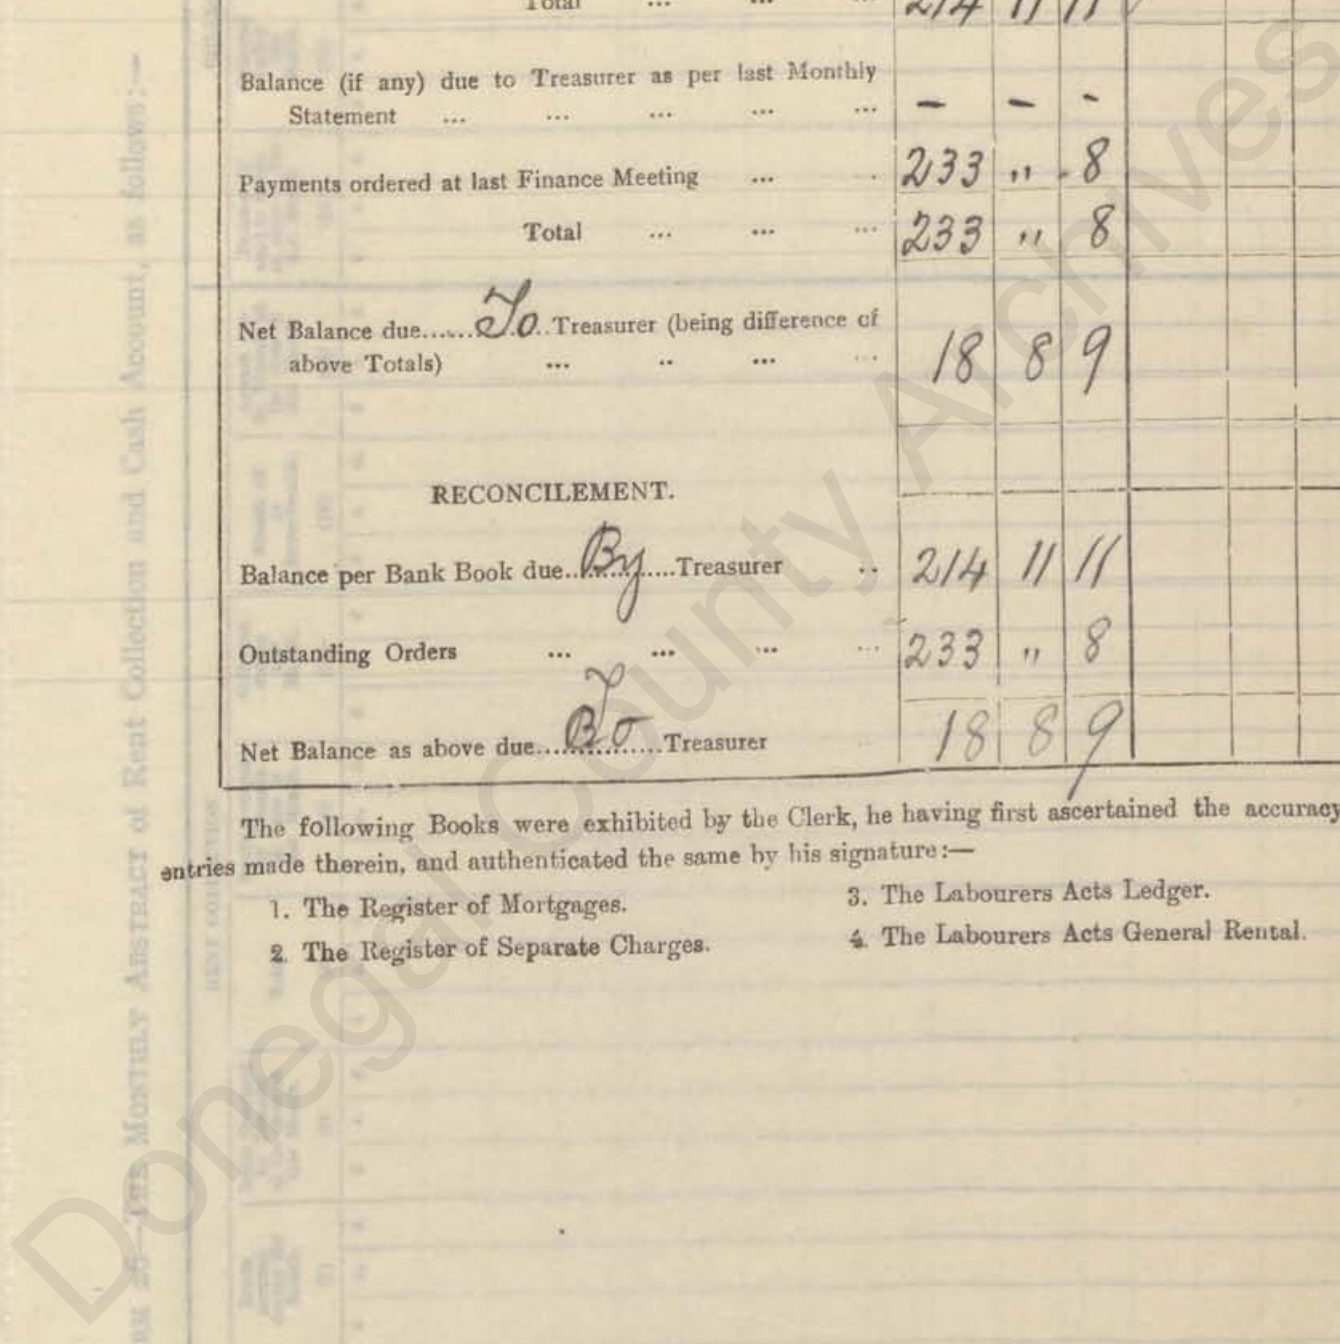 Total ... ... ... 214 11 11
Balance (if any) due to Treasurer as per last Monthly
Statement ... ... ... ... ... – – -
Payments ordered at last Finance Meeting ... . 233 " 8
Total ... ... ... 233 " 8
Net Balance due......To..Treasurer (being difference of
above Totals) ... .. ... ... 18 8 9
RECONCILEMENT.
Balance per Bank Book due..By....Treasurer .. 214 11 11
Outstanding Orders ... ... ... ... 233 " 8
Net Balance as above due....To....Treasurer 18 8 9
The following Books were exhibited by the Clerk, he having first ascertained the accuracy
entries made therein, and authenticated the same by his signature:—
1. The Register of Mortgages.
2. The Register of Separate Charges.
3. The Labourers Acts Ledger.
4. The Labourers Acts General Rental.
26—The Monthly Abstract of Rent Collection and Cash Account, as follows:—
RENT COLLECTION
Donegal County Archives